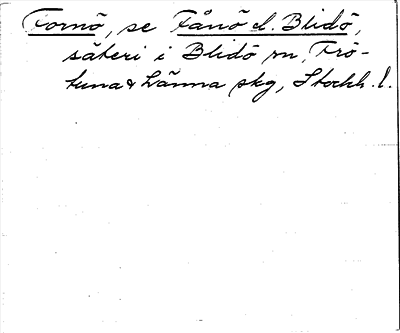 Fornö, se Fånö l. Blidö,
säteri i Blidö sn, Frö-
tuna & Länna skg, Stockh. l.